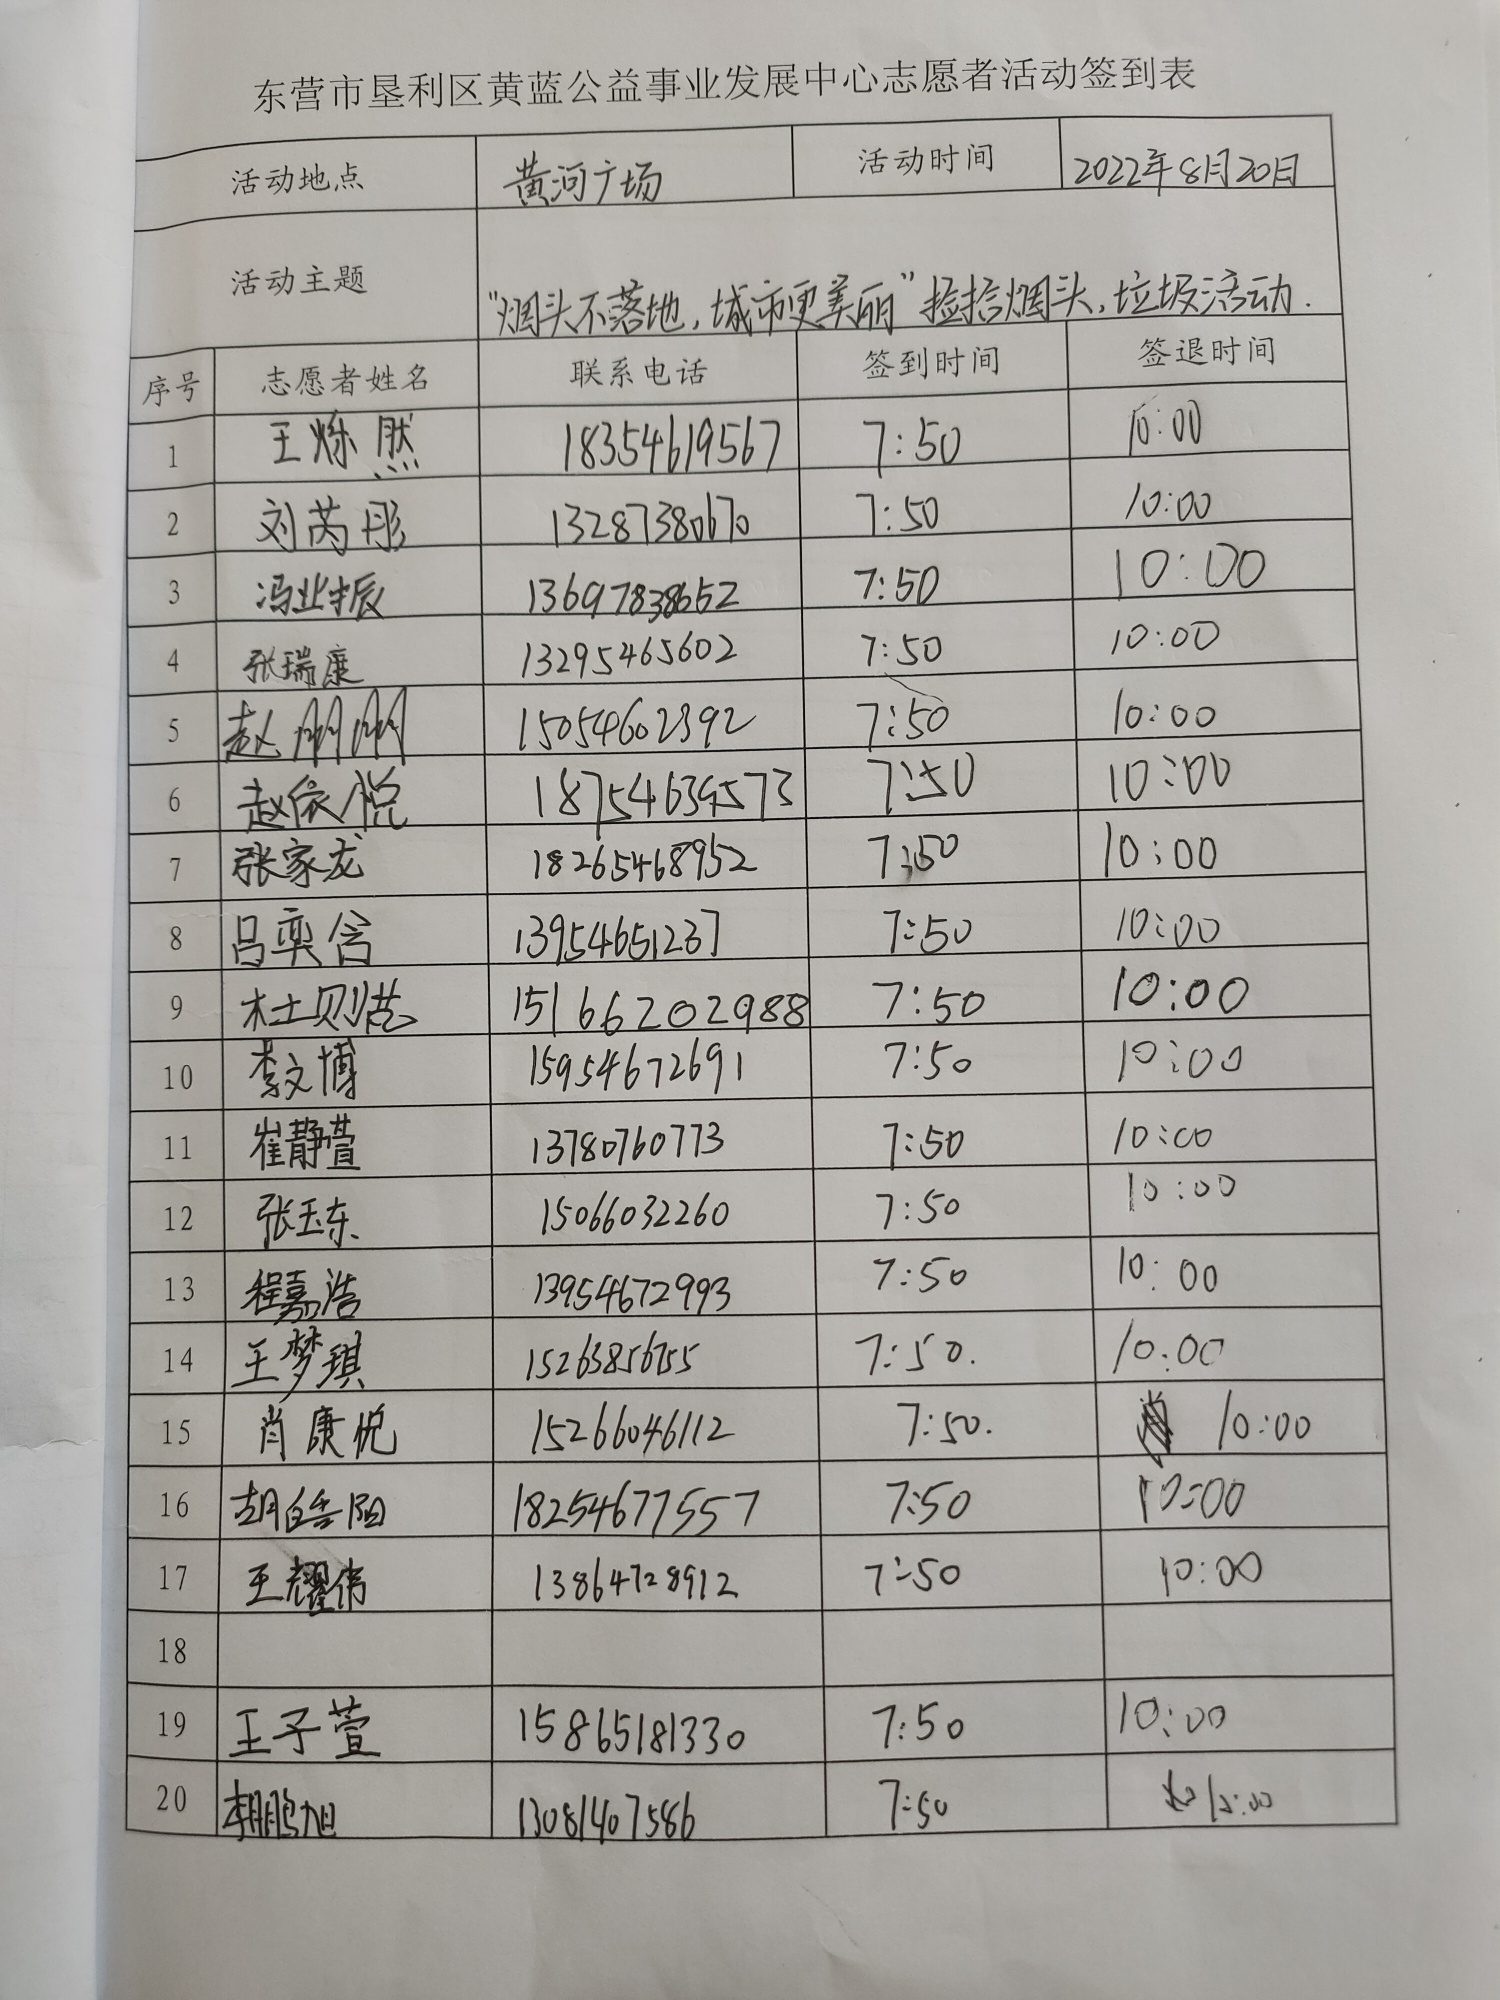 东营市垦利区黄蓝公益事业发展中心志愿者活动签到表
活动地点 黄河广场 活动时间 2022年8月20日
活动主题 “烟头不落地，城市更美丽”捡拾烟头，垃圾活动.
序号 志愿者姓名 联系电话 签到时间 签退时间
1 王烁然 18354619567 7:50 10:00
2 刘芮彤 13287380670 7:50 10:00
3 冯业振 13697838652 7:50 10:00
4 张瑞康 13295465602 7:50 10:00
5 赵朋朋 15054602392 7:50 10:00
6 赵依悦 18754639573 7:50 10:00
7 张家龙 18265468952 7:50 10:00
8 吕奕含 13954651237 7:50 10:00
9 杜则芸 15166202988 7:50 10:00
10 李文博 15954672691 7:50 10:00
11 崔静萱 13780760773 7:50 10:00
12 张玉东 15066032260 7:50 10:00
13 程嘉浩 13954672993 7:50 10:00
14 王梦琪 15263856755 7:50. 10:00
15 肖康悦 15266046112 7:50. 10:00
16 胡皓阳 18254677557 7:50 10:00
17 王耀伟 13864728912 7:50 10:00
18
19 王子萱 15865181330 7:50 10:00
20 李鹏旭 13081407586 7:50